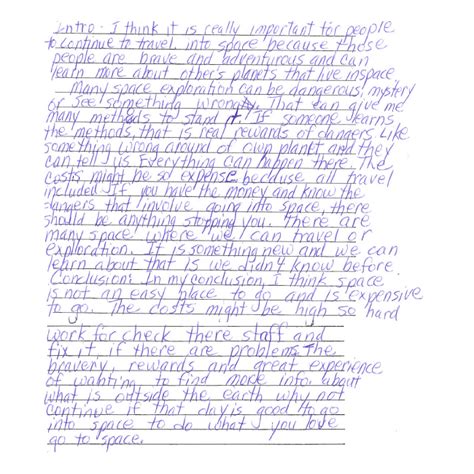 Intro - I think it is really important for people
to continue to travel into space because those
people are brave and adventurous and can
learn more about others planets that live inspace.
Many space exploration can be dangerous, mystery
or see something wrongty. That can give me
many methods to stand it. If someone learns
the methods, that is real rewards of dangers like
something wrong around of own planet, and they
can tell us everything can happen there. The
costs might be so expense, because all travel
included. If, you have the money and know the
dangers that involve going into space, there
should be anything stopping you. There are
many space where we can travel or
exploration. It is something new and we can
learn about that is we didn't know before.
Conclusion: In my conclusion, I think space
is not an easy place to do and is expensive
to go. The costs might be high so hard
work for check there staff and
fix it, if there are problems. The
bravery, rewards and great experience
of wanting to find more info. about
what is outside the earth why not
continue if that day is good to go
into space to do what you love
go to space.